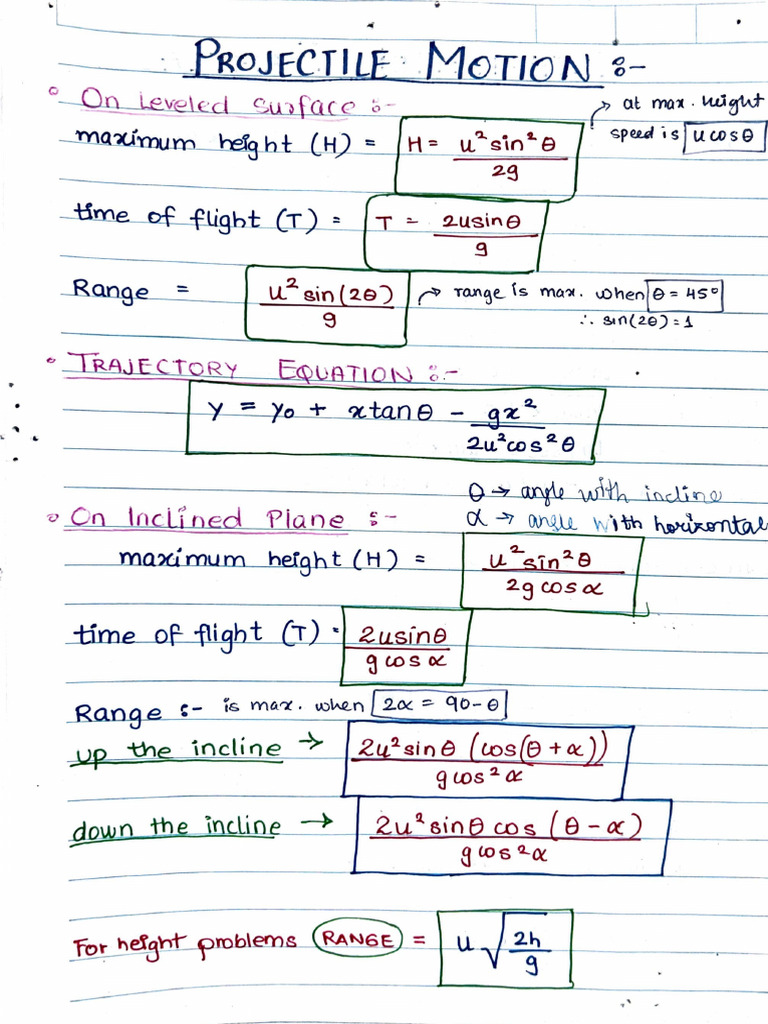 PROJECTILE MOTION :-
On Leveled surface :- → at max. height
maximum height (H) = H = u² sin² θ / 2g speed is u cosθ
time of flight (T) = T = 2usinθ / g
Range = u² sin(2θ) / g → range is max. when θ = 45°
∴ sin(2θ) = 1
TRAJECTORY EQUATION :-
y = y₀ + x tanθ - gx² / 2u² cos² θ
θ → angle with incline
On Inclined Plane :- α → angle with horizontal
maximum height (H) = u² sin² θ / 2g cos α
time of flight (T) = 2usinθ / g cos α
Range :- is max. when 2α = 90 - θ
up the incline → 2u² sinθ (cos(θ + α)) / g cos² α
down the incline → 2u² sinθ cos (θ - α) / g cos² α
For height problems RANGE = u √(2h / g)